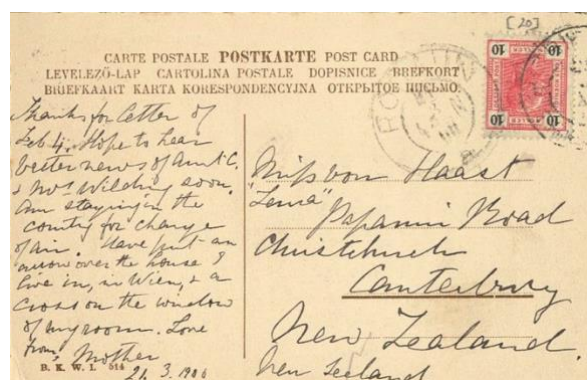 [20]
CARTE POSTALE POSTKARTE POST CARD
LEVELEZŐ-LAP CARTOLINA POSTALE DOPISNICE BREFKORT
BRIEFKAART KARTA KORESPONDENCYJNA ОТКРЫТОЕ ПИСЬМО.
10 10
10 10
Thanks for letter of
Feb 4. Hope to hear
better news of Aunt C.
& Mrs Wilding soon.
Am staying in the
country for change
of air. Have put an
arrow over the house I
live in, in Wien, & a
cross on the window
of my room. Love
from Mother
21.3.1906
B. K. W. I. 514
Miss von Haast
Papanui Road
Christchurch
Canterbury
New Zealand.